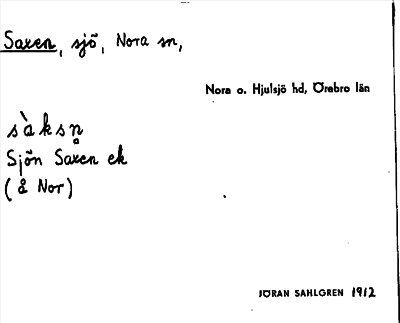 Saxen, sjö, Nora sn,
Nora o. Hjulsjö hd, Örebro län
sàksn̥
Sjön Saxen ek
(å Nor)
JÖRAN SAHLGREN 1912